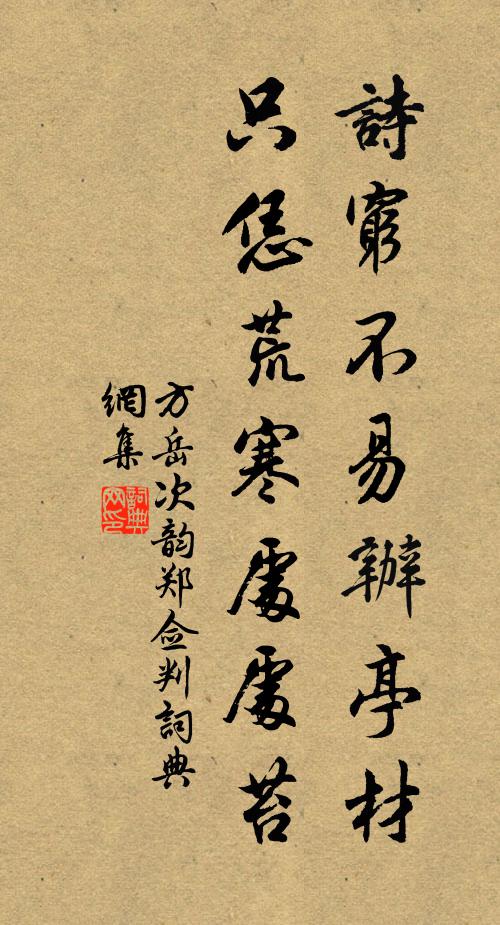 詩窮不易辦亭材
只恁荒寒處處苔
方岳次韵郑佥判詞典
網集
詞典
网印